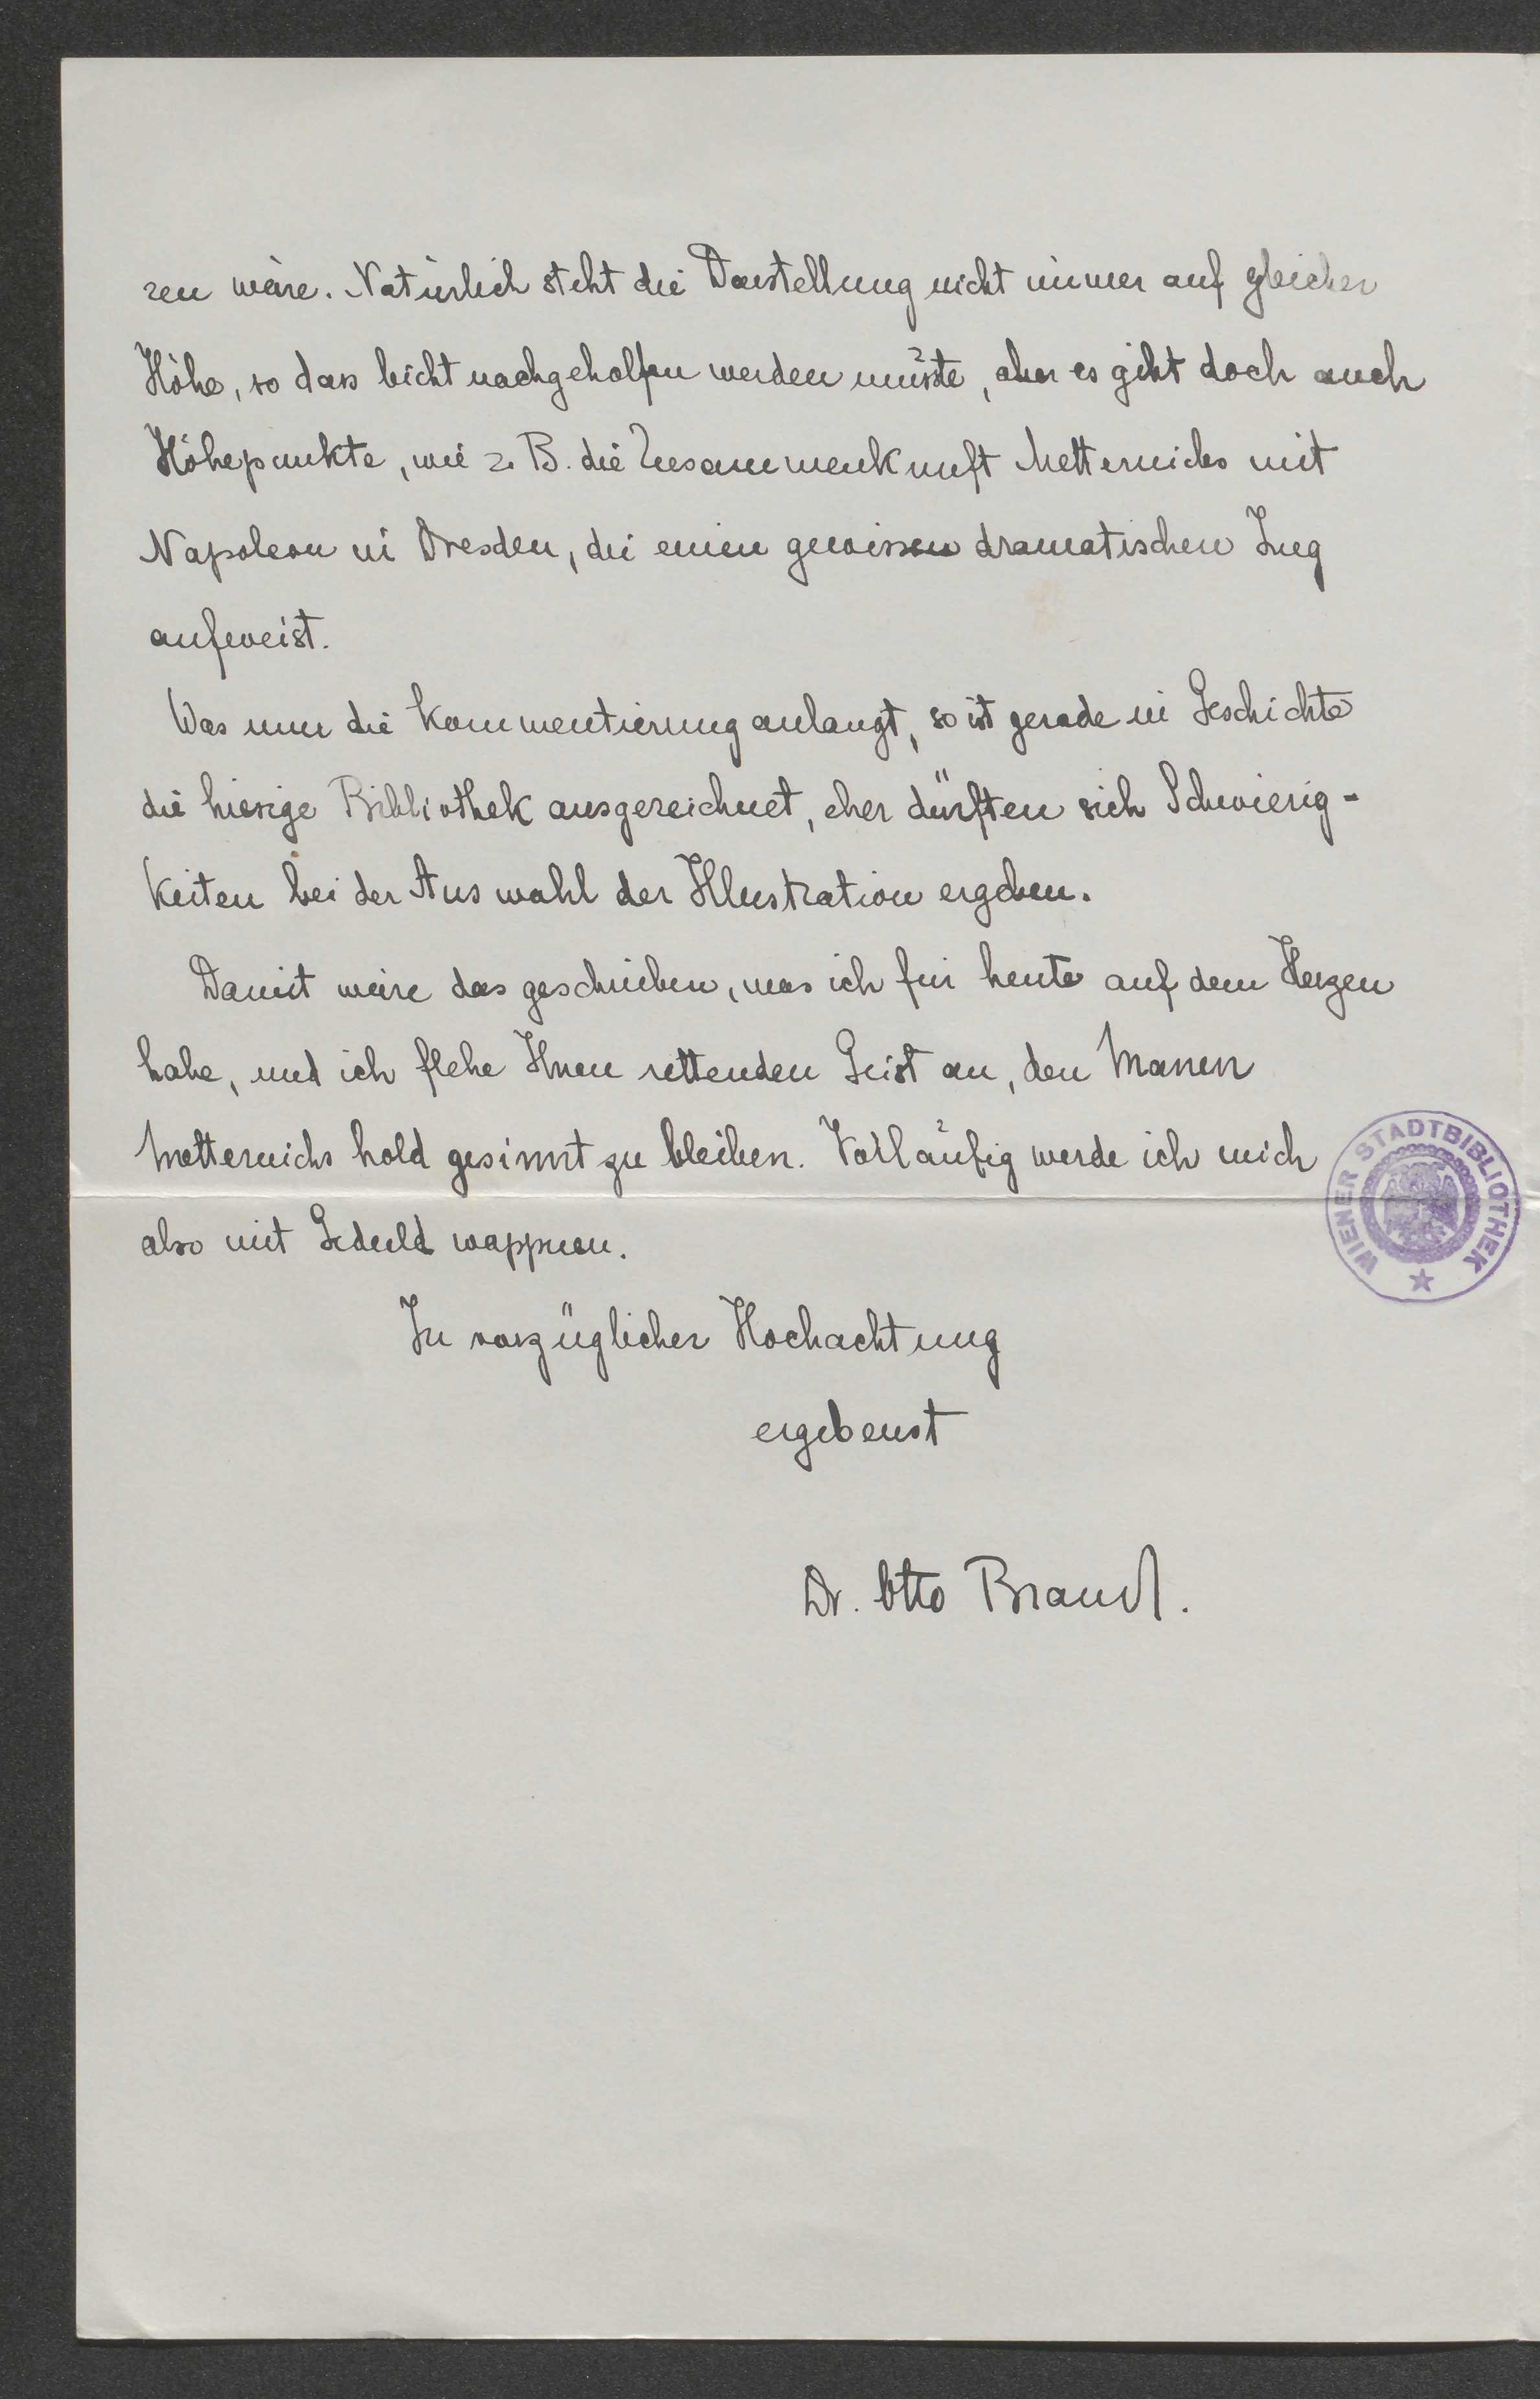 ren wäre. Natürlich steht die Darstellung nicht immer auf gleicher
Höhe, so dass leicht nachgeholfen werden müsste, aber es gibt doch auch
Höhepunkte, wie z. B. die Zusammenkunft Metternichs mit
Napoleon in Dresden, die einen gewissen dramatischen Zug
aufweist.
Was nun die Kommentierung anlangt, so ist gerade in Geschichte
die hiesige Bibliothek ausgezeichnet, eher dürften sich Schwierig-
keiten bei der Auswahl der Illustration ergeben.
Damit wäre das geschrieben, was ich für heute auf dem Herzen
habe, und ich flehe Ihnen rettenden Geist an, den Manen
Metternichs hold gesinnt zu bleiben. Vorläufig werde ich mich
also mit Geduld wappnen.
In vorzüglicher Hochachtung
ergebenst
Dr. Otto Brandt.
WIENER STADTBIBLIOTHEK